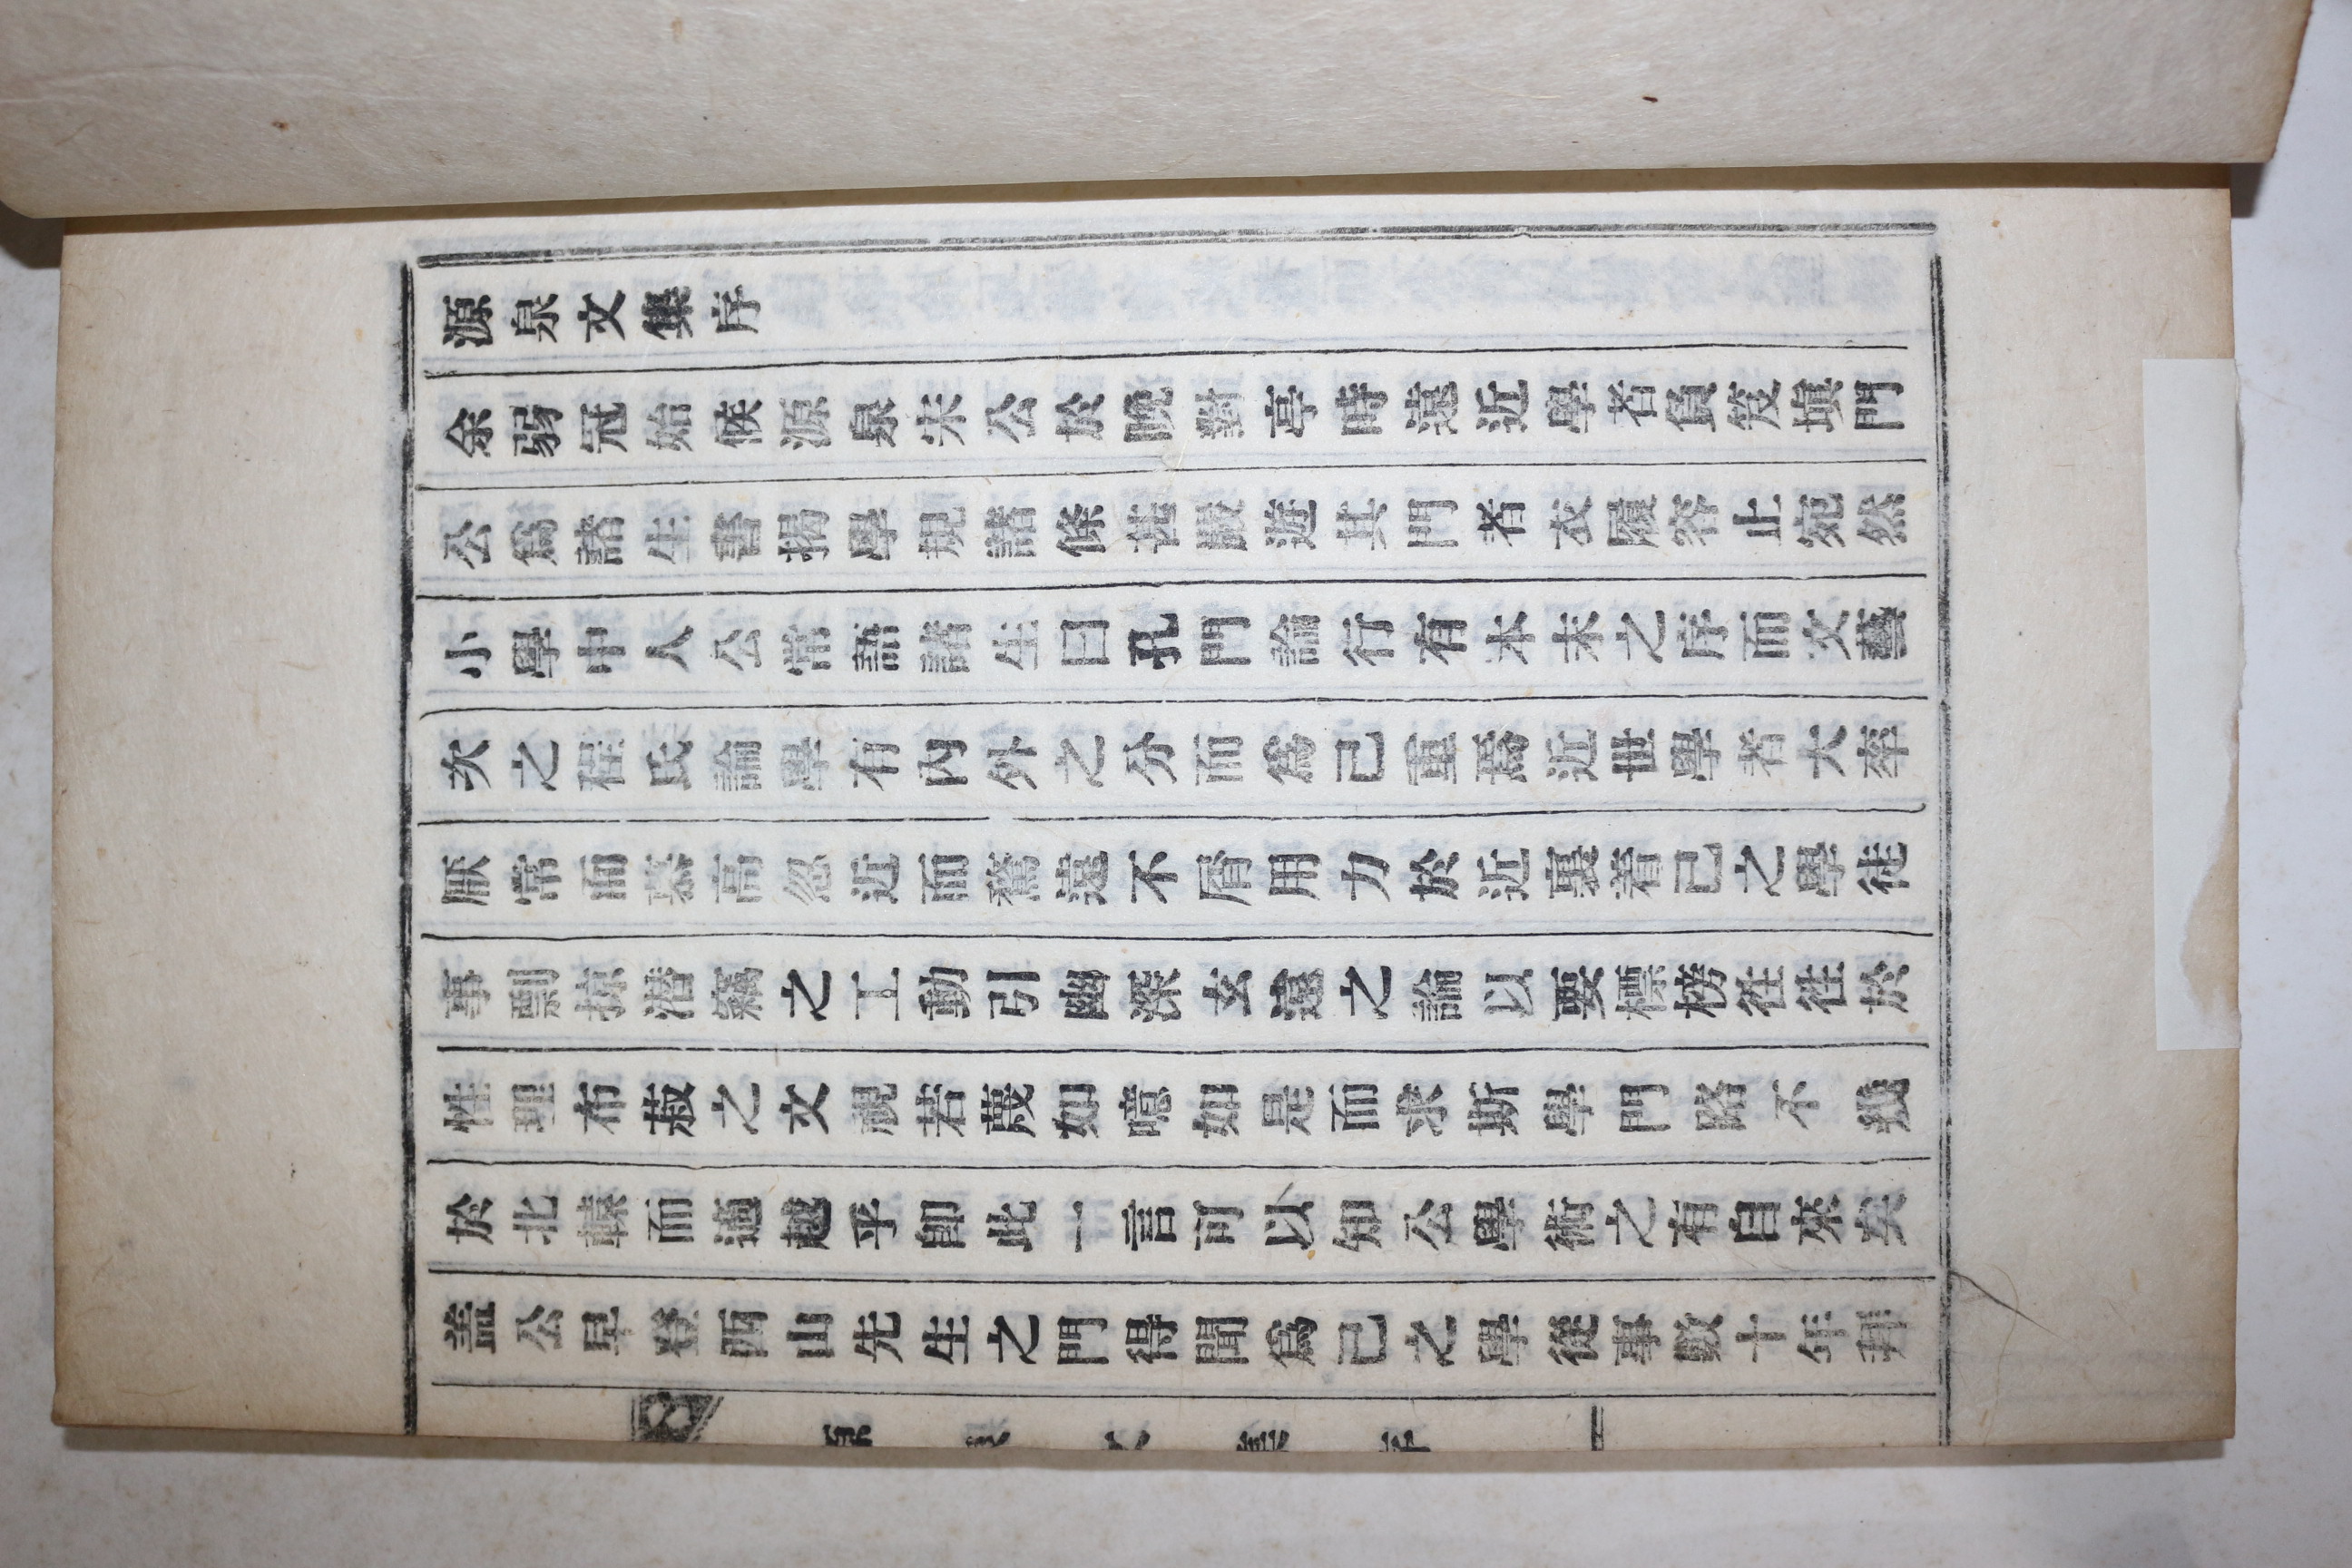 源泉文集序
余弱冠始候源泉宋公於晩對亭時遠近學者負笈塡門
公爲諸生書揭學規諸條甚嚴遊其門者衣履容止宛然
小學中人公常語諸生曰孔門論行有本末之序而文藝
次之程氏論學有內外之分而爲己重焉近世學者大率
厭常而慕高忽近而騖遠不屑用力於近裏着己之學徒
事剽掠潛竊之工動引幽深玄遠之論以要標榜徃徃於
性理布菽之文視若蔑如噫如是而求斯學門路不幾
於北轅而適越乎卽此一言可以知公學術之有自來矣
盖公早登西山先生之門得聞爲己之學從事數十年邦
源泉文集序